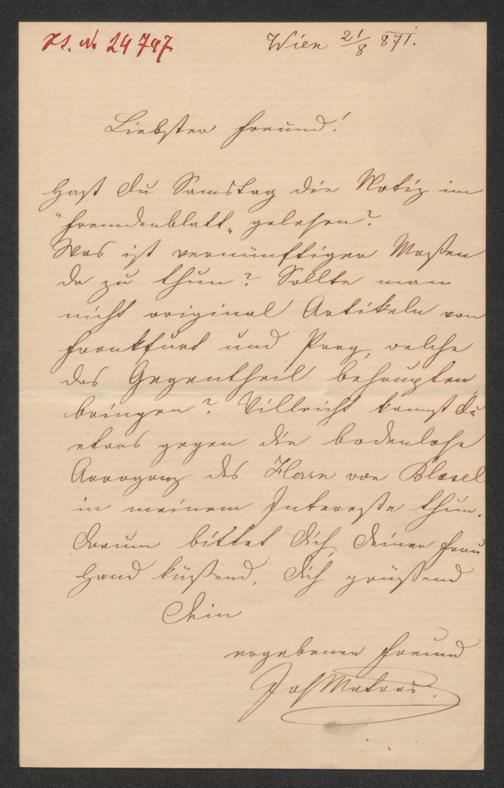 J. N. 24797
Wien 21/8 871.
Liebster Freund!
Hast du Samstag die Notiz im
"Fremdenblatt" gelesen?
Was ist vernünftiger Maßen
da zu thun? Sollte man
nicht original Artikeln von
Frankfurt und Prag, welche
das Gegentheil behaupten
bringen? Villeicht kannst du
etwas gegen die bodenlose
Arroganz des Herrn von Blasel
in meinem Interesse thun.
Darum bittet dich, deiner Frau
Hand küßend, dich grüßend
Dein
ergebener Freund
Jos Matras.